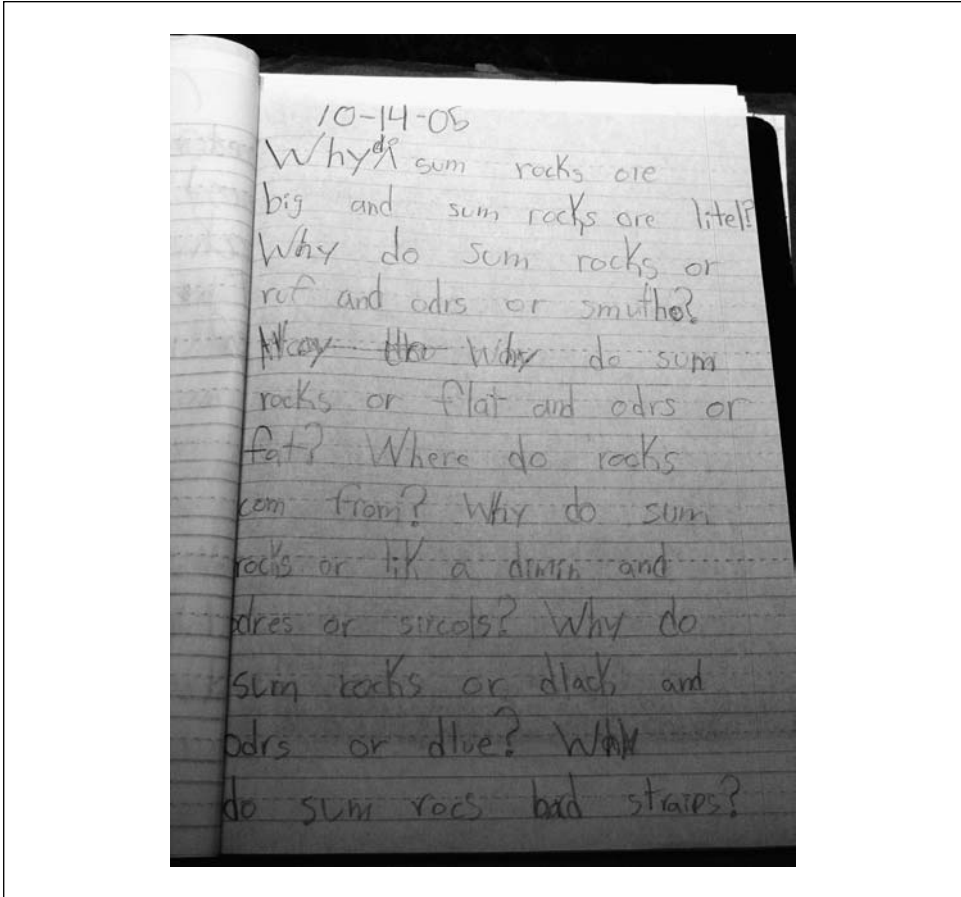 10-14-05
Why do sum rocks are
big and sum rocks are litel?
Why do sum rocks or
ruf and odrs or smuthe?
Why do sum
rocks or flat and odrs or
fat? Where do rocks
com from? Why do sum
rocks or lik a dimin and
odres or sircols? Why do
sum rocks or dlack and
odrs or dlue? Why
do sum rocs had straips?